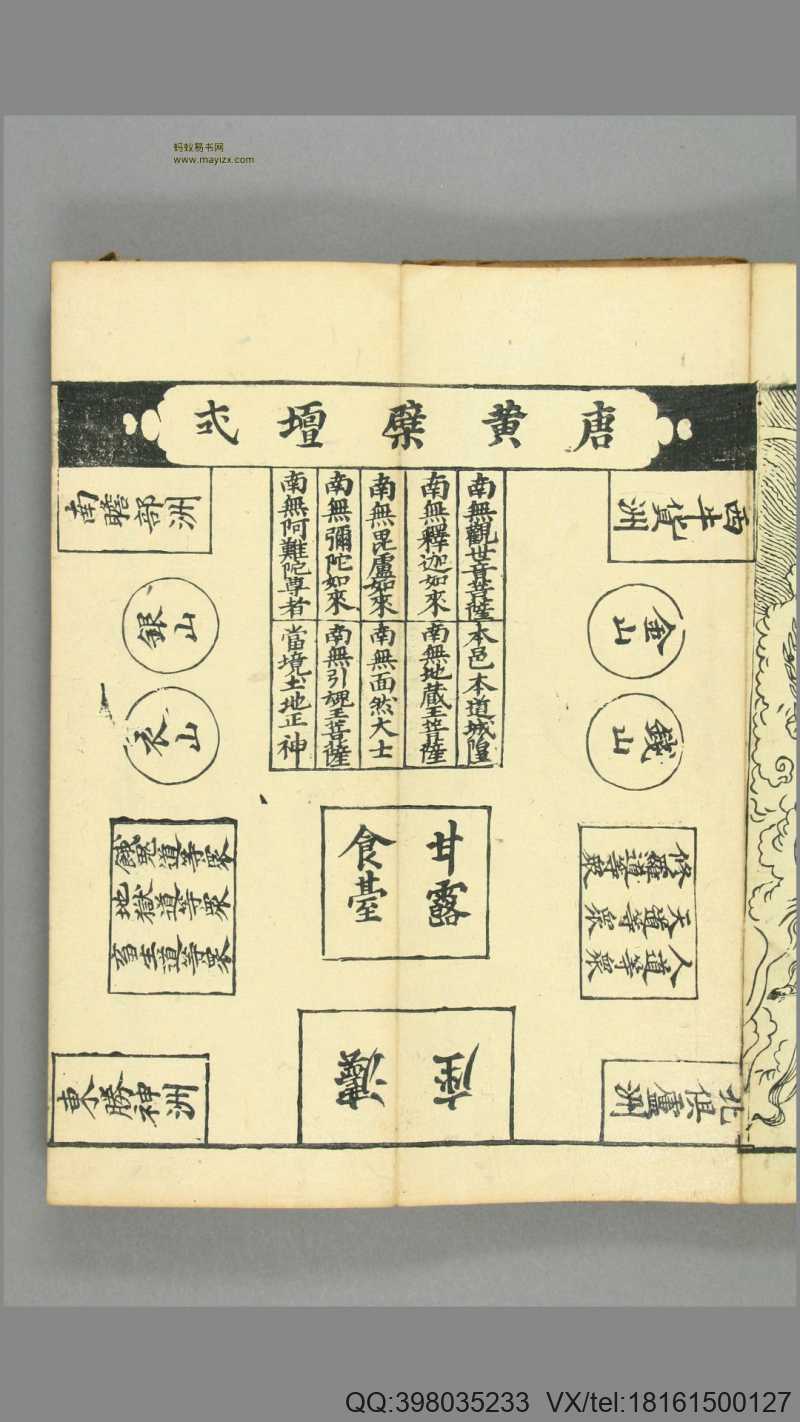 蚂蚁易书网
www.mayizx.com
唐黄檗壇式
西牛貨洲
南無觀世音菩薩
南無釋迦如來
南無毘盧如來
南無彌陀如來
南無阿難陀尊者
本邑本道城隍
南無地蔵王菩薩
南無面然大士
南無引魂王菩薩
當境土地正神
南瞻部洲
金山
錢山
銀山
衣山
甘露
食臺
修羅道等眾
天道等眾
人道等眾
餓鬼道等眾
地獄道等眾
畜生道等眾
北俱盧洲
東勝神洲
QQ:398035233 VX/tel:18161500127